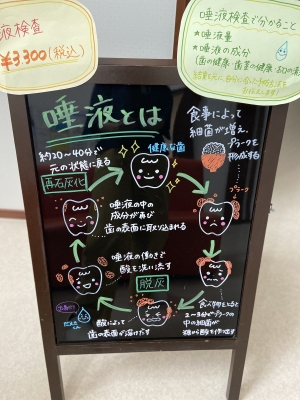 液検査
¥3,300(税込)
唾液検査で分かること
★唾液量
★唾液の成分
(歯の健康・歯茎の健康・お口の清
唾液とは
健康な歯
食事によって
細菌が増え、
プラークを
形成する
プラーク
食べ物をとると
2~3分でプラークの
中の細菌が
酸を作り出す
脱灰
酸によって
歯の表面が溶けだす
唾液の働きで
酸を洗い流す
再石灰化
唾液の中の
成分が再び
歯の表面に取り込まれる
約20~40分で
元の状態に戻る
だえき
くん